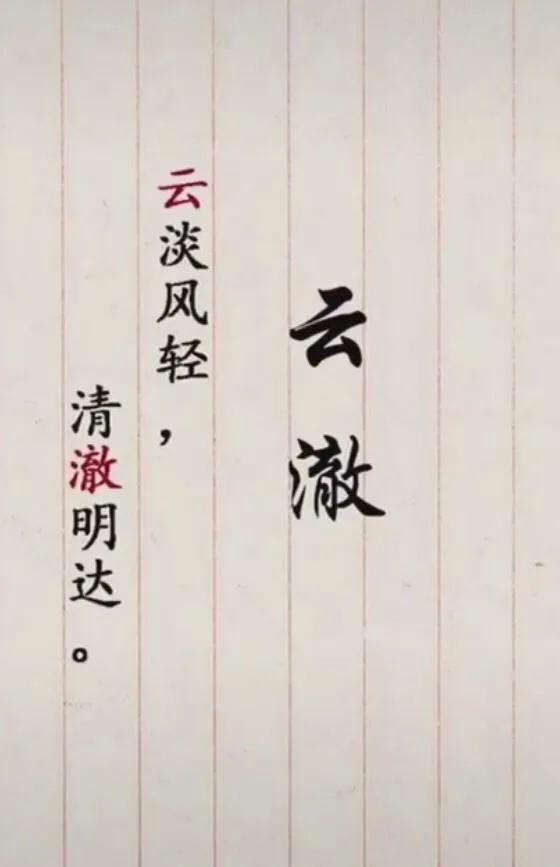 云澈
云淡风轻，
清澈明达。